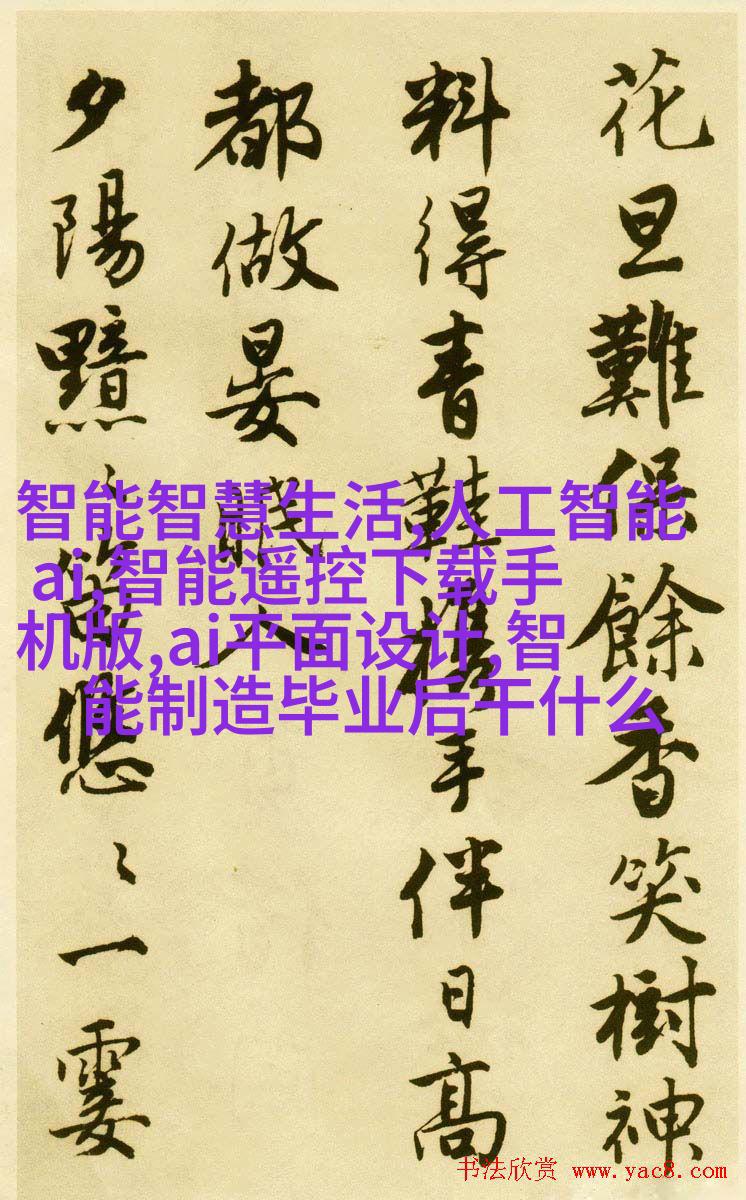 花旦難保餘香笑樹神
料得青鞋携手伴日高
都做晏眠人
夕陽黯〻悠〻一霎
智能智慧生活,人工智能
ai,智能遥控下载手
机版,ai平面设计,智
能制造毕业后干什么
书法欣赏 www.yac8.com